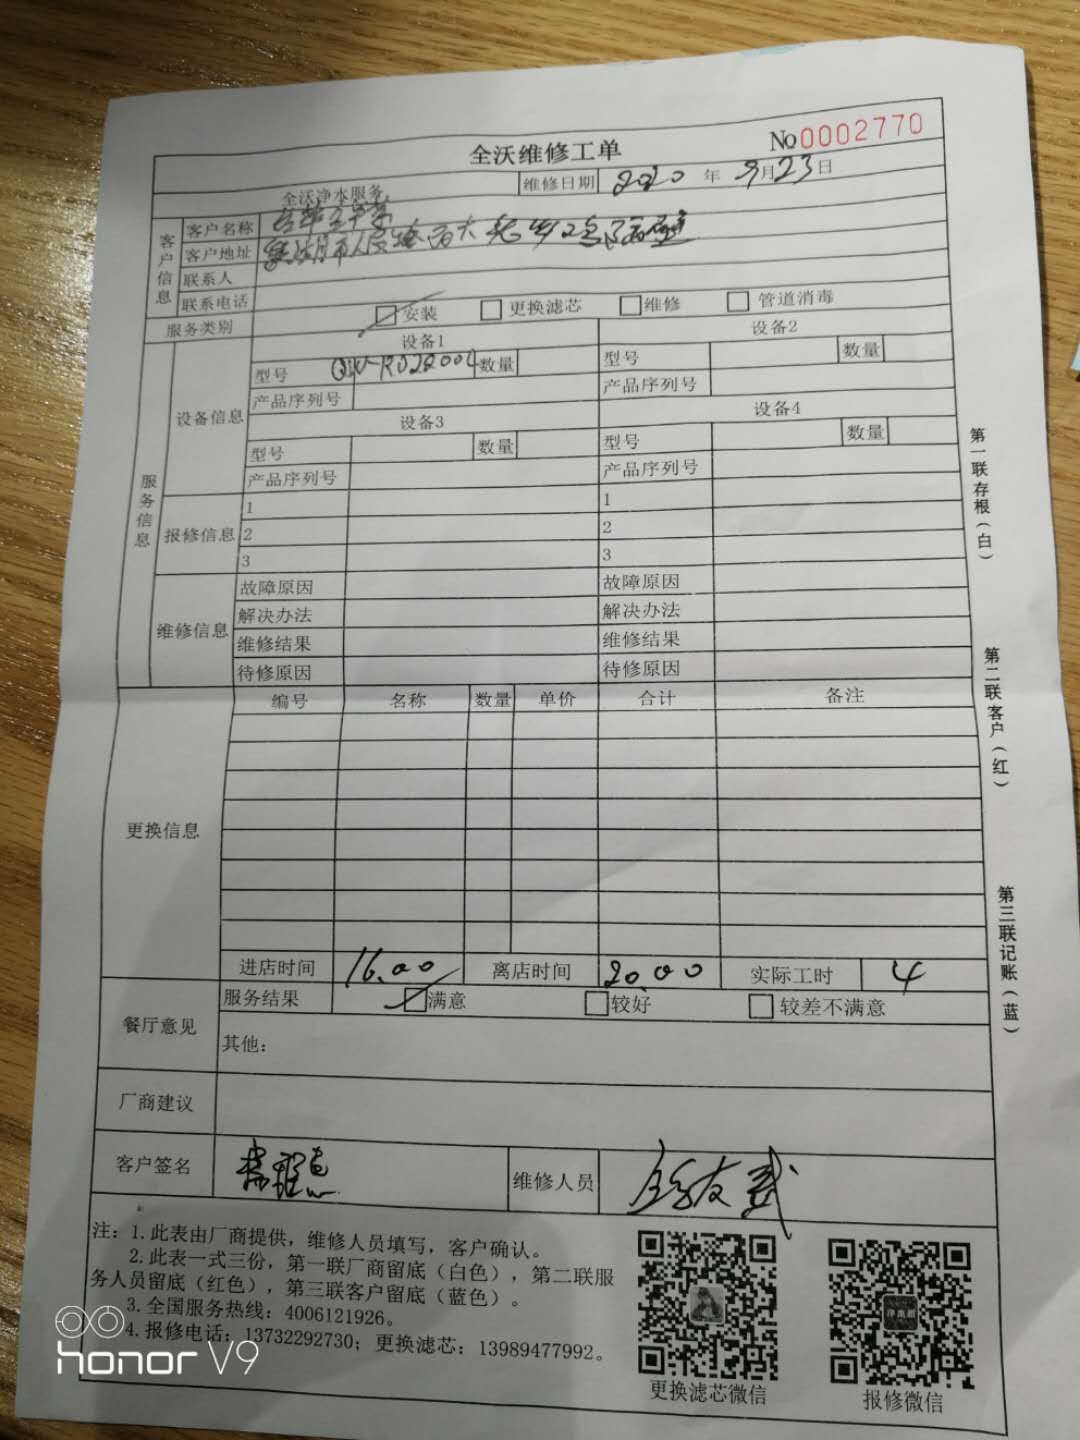 全沃维修工单
No 0002770
全沃净水服务
维修日期 2020 年 9月23日
客户信息
客户名称
客户地址
联系人
联系电话
服务类别 安装 更换滤芯 维修 管道消毒
服务信息
设备信息
设备1 设备2
型号 数量 型号 数量
产品序列号 产品序列号
设备3 设备4
型号 数量 型号 数量
产品序列号 产品序列号
报修信息
1 1
2 2
3 3
维修信息
故障原因 故障原因
解决办法 解决办法
维修结果 维修结果
待修原因 待修原因
更换信息
编号 名称 数量 单价 合计 备注
进店时间 16.00 离店时间 20.00 实际工时 4
餐厅意见
服务结果 满意 较好 较差不满意
其他:
厂商建议
客户签名 维修人员
注: 1.此表由厂商提供，维修人员填写，客户确认。
2.此表一式三份，第一联厂商留底（白色），第二联服
务人员留底（红色），第三联客户留底（蓝色）。
3.全国服务热线：4006121926。
4.报修电话：13732292730；更换滤芯：13989477992。
更换滤芯微信
报修微信
第一联存根（白）
第二联客户（红）
第三联记账（蓝）
honor V9